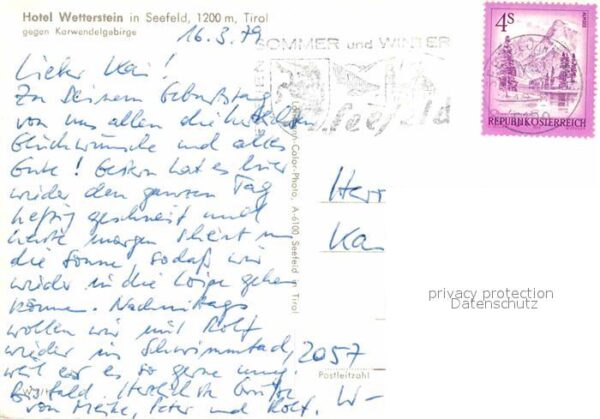 Hotel Wetterstein in Seefeld, 1200 m, Tirol
gegen Karwendelgebirge
16.3.79
Lieber Kai!
Zu Deinem Geburtstag
von uns allen die herzlichsten
Glückwünsche und alles
Gute! Gestern hat es hier
wieder den ganzen Tag
heftig geschneit und
heute morgen scheint
die Sonne sodaß wir
wieder in die Loipe gehen
können. Nachmittags
wollen wir mit Rolf
wieder ins Schwimmbad,
weil er es so gerne mag.
Bis bald. Herzliche Grüße
von Meike, Peter und Rolf.
SOMMER und WINTER
Seefeld
4S
REPUBLIK ÖSTERREICH
Color-Photo, A-6100 Seefeld in Tirol
Herr
Kai
privacy protection
Datenschutz
2057
Postleitzahl
W-